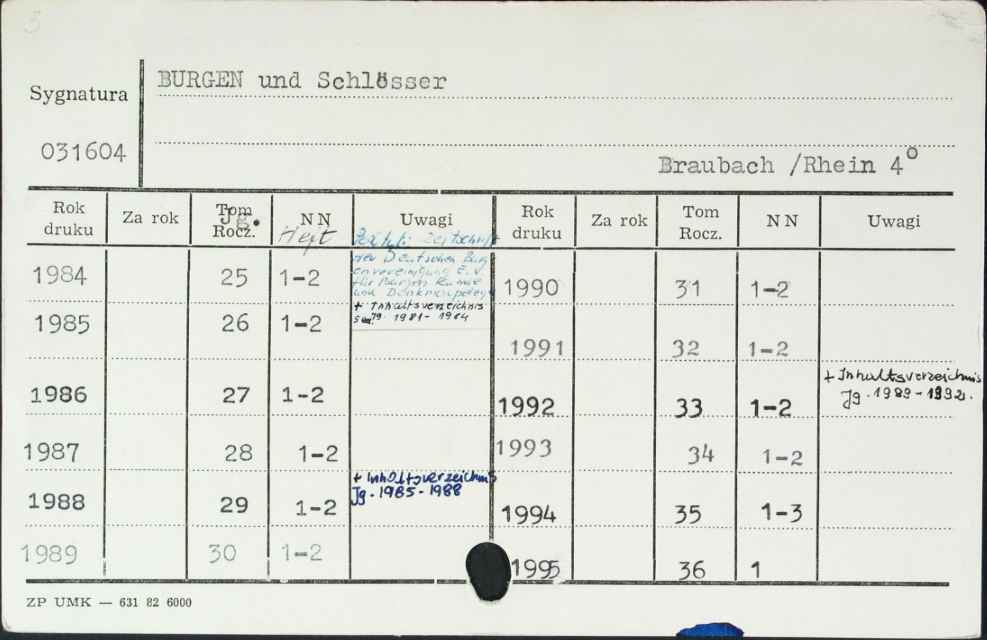 3
BURGEN und Schlösser
Sygnatura
031604
Braubach /Rhein 4°
Rok druku Za rok Tom Rocz. Jg. NN Heft Uwagi Rok druku Za rok Tom Rocz. NN Uwagi
Zeitschrift
der Deutschen Burg
envereinigung E.V.
für Burgen Kunde
und Denkmalpflege
+ Inhaltsverzeichnis
Jg. 1981- 1984
1984 25 1-2
1985 26 1-2
1986 27 1-2
1987 28 1-2
1988 29 1-2 + Inhaltsverzeichnis
Jg. 1985-1988
1989 30 1-2
1990 31 1-2
1991 32 1-2
+ Inhaltsverzeichnis
Jg. 1989-1992.
1992 33 1-2
1993 34 1-2
1994 35 1-3
1995 36 1
ZP UMK — 631 82 6000